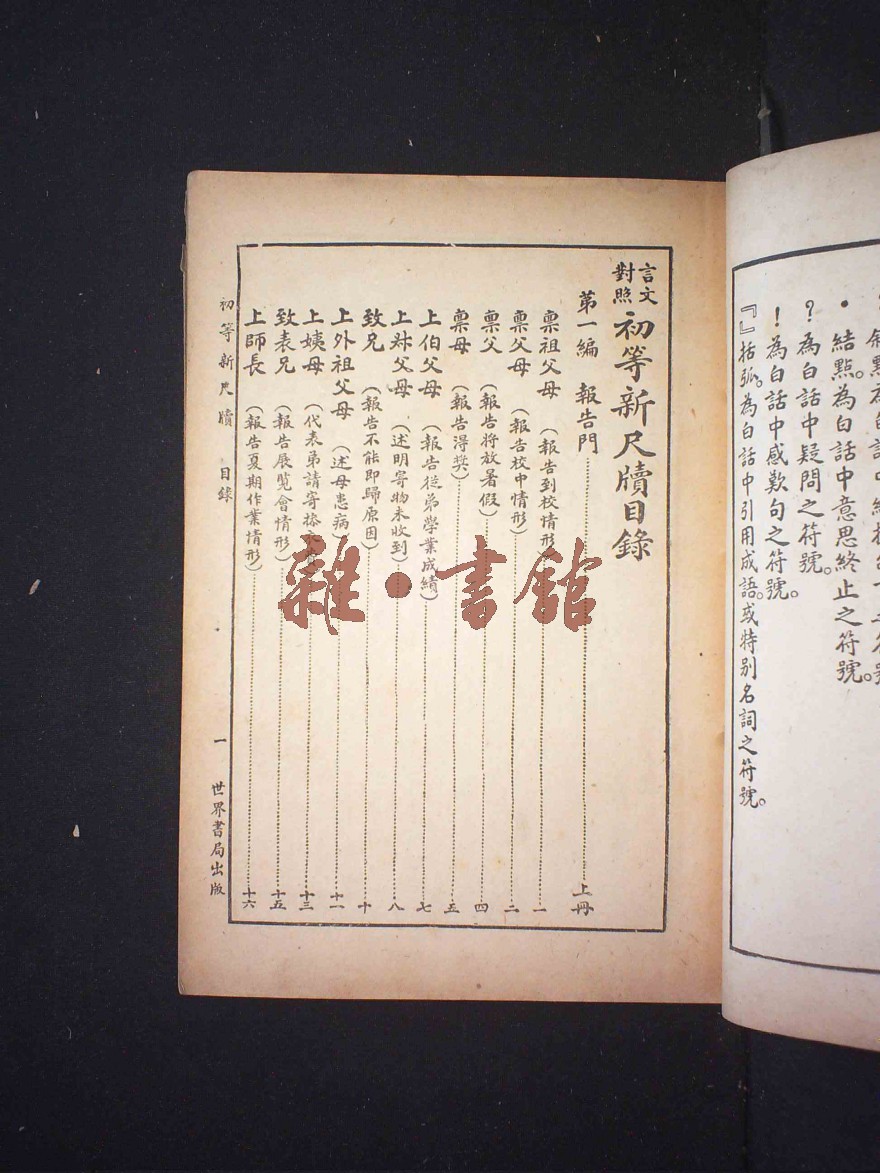 結點。為白話中意思終止之符號。
？為白話中疑問之符號。
！為白話中感歎句之符號。
『』括弧。為白話中引用成語。或特别名詞之符號。
言文對照 初等新尺牘目錄
第一編 報告門 上冊
稟祖父母 (報告到校情形) 一
稟父母 (報告校中情形) 二
稟父 (報告將放暑假) 四
稟母 (報告得獎) 五
上伯父母 (報告從弟學業成績) 七
上叔父母 (述明寄物未收到) 八
致兄 (報告不能即歸原因) 十
上外祖父母 (述母患病) 十一
上姨母 (代表弟請寄 十三
致表兄 (報告展覽會情形) 十五
上師長 (報告夏期作業情形) 十六
初等新尺牘 目錄 一 世界書局出版
雜·書館